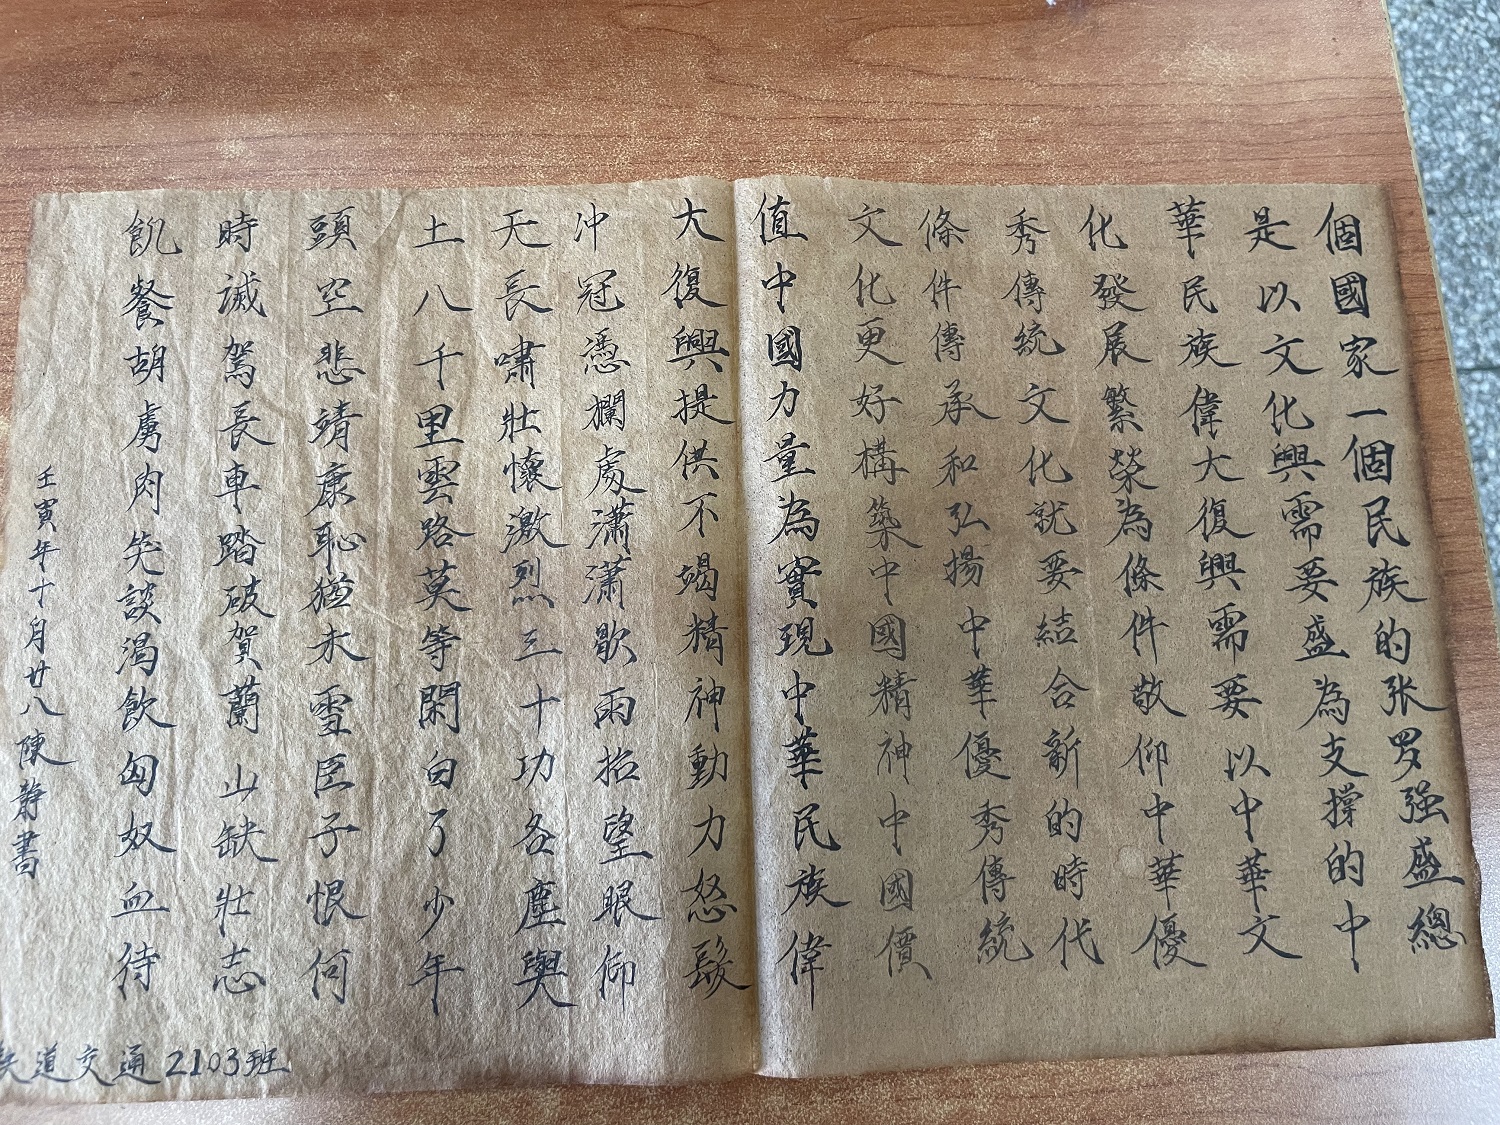 個國家一個民族的张罗强盛總
是以文化興需要盛為支撐的中
華民族偉大復興需要以中華文
化發展繁榮為條件敬仰中華優
秀傳統文化就要結合新的時代
條件傳承和弘揚中華優秀傳統
文化更好構築中國精神中國價
值中國力量為實現中華民族偉
大復興提供不竭精神動力怒髮
沖冠憑欄處瀟瀟歇雨抬望眼仰
天長嘯壯懷激烈三十功名塵與
土八千里雲路莫等閑白了少年
頭空悲靖康恥猶未雪臣子恨何
時滅駕長車踏破賀蘭山缺壯志
飢餐胡虜肉笑談渴飲匈奴血待
壬寅年十月廿八陳靜書
道交通2103班